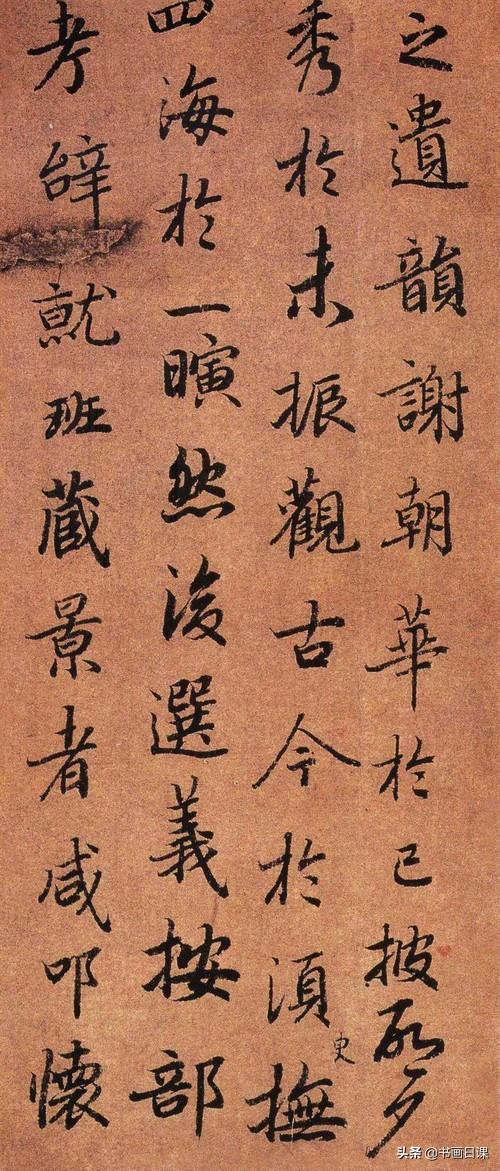 之遺韻謝朝華於已披啓夕
秀於未振觀古今於須臾撫
四海於一瞚然後選義按部
考辭就班蔵景者咸叩懷
头条 @书画日课